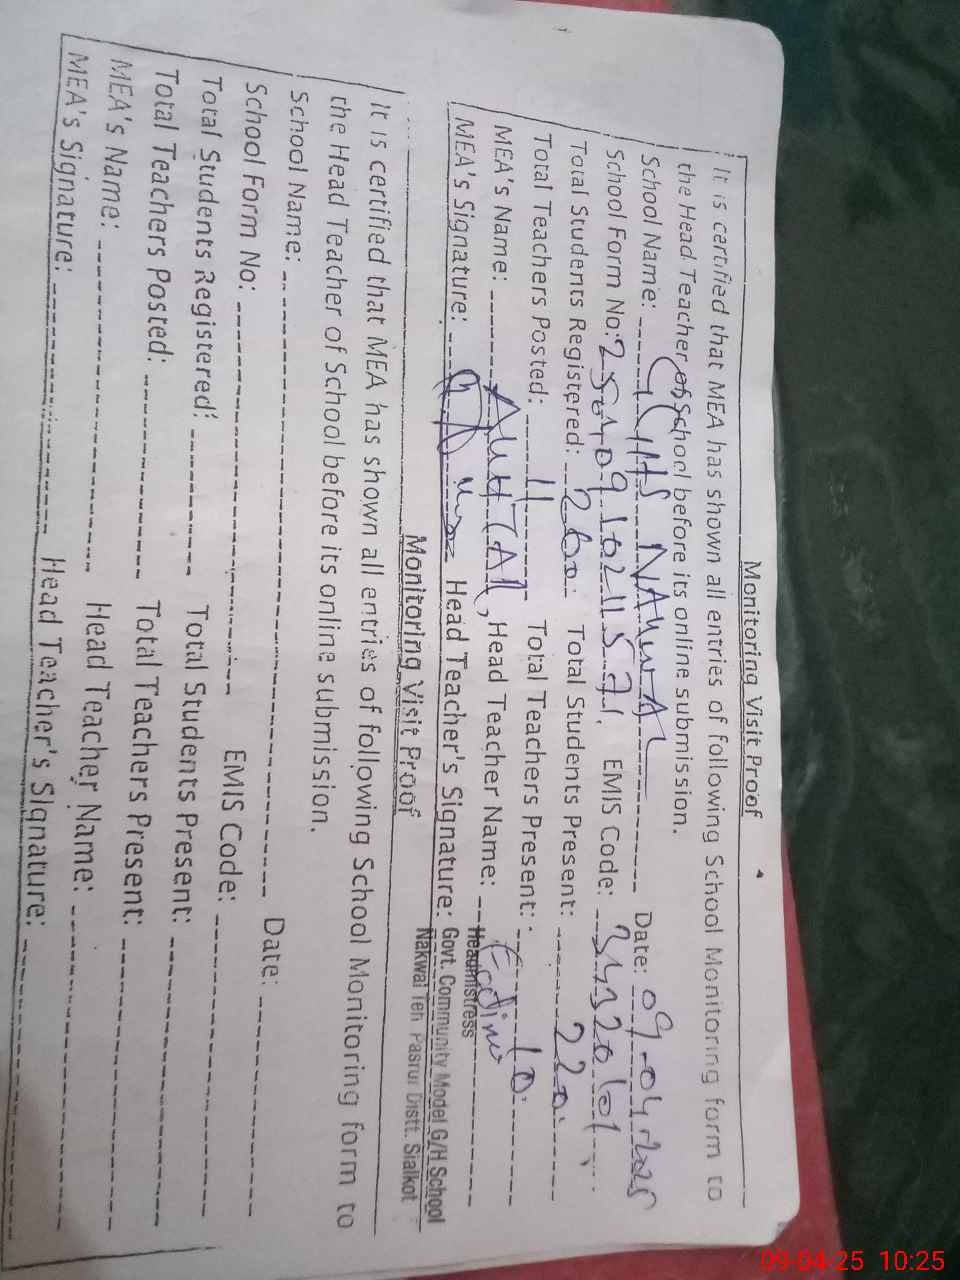 Monitoring Visit Proof
It is certified that MEA has shown all entries of following School Monitoring form to
the Head Teacher of School before its online submission.
School Name: Date: 09-04-2025
School Form No: EMIS Code: 34320101
Total Students Registered: 260 Total Students Present: 220
Total Teachers Posted: 11 Total Teachers Present: 10
MEA's Name: Head Teacher Name:
MEA's Signature: Head Teacher's Signature:
Headmistress
Govt. Community Model G/H School
Nakwal Teh Pasrur Distt. Sialkot
Monitoring Visit Proof
It is certified that MEA has shown all entries of following School Monitoring form to
the Head Teacher of School before its online submission.
School Name: Date:
School Form No: EMIS Code:
Total Students Registered: Total Students Present:
Total Teachers Posted: Total Teachers Present:
MEA's Name: Head Teacher Name:
MEA's Signature: Head Teacher's Signature:
09-04-25 10:25